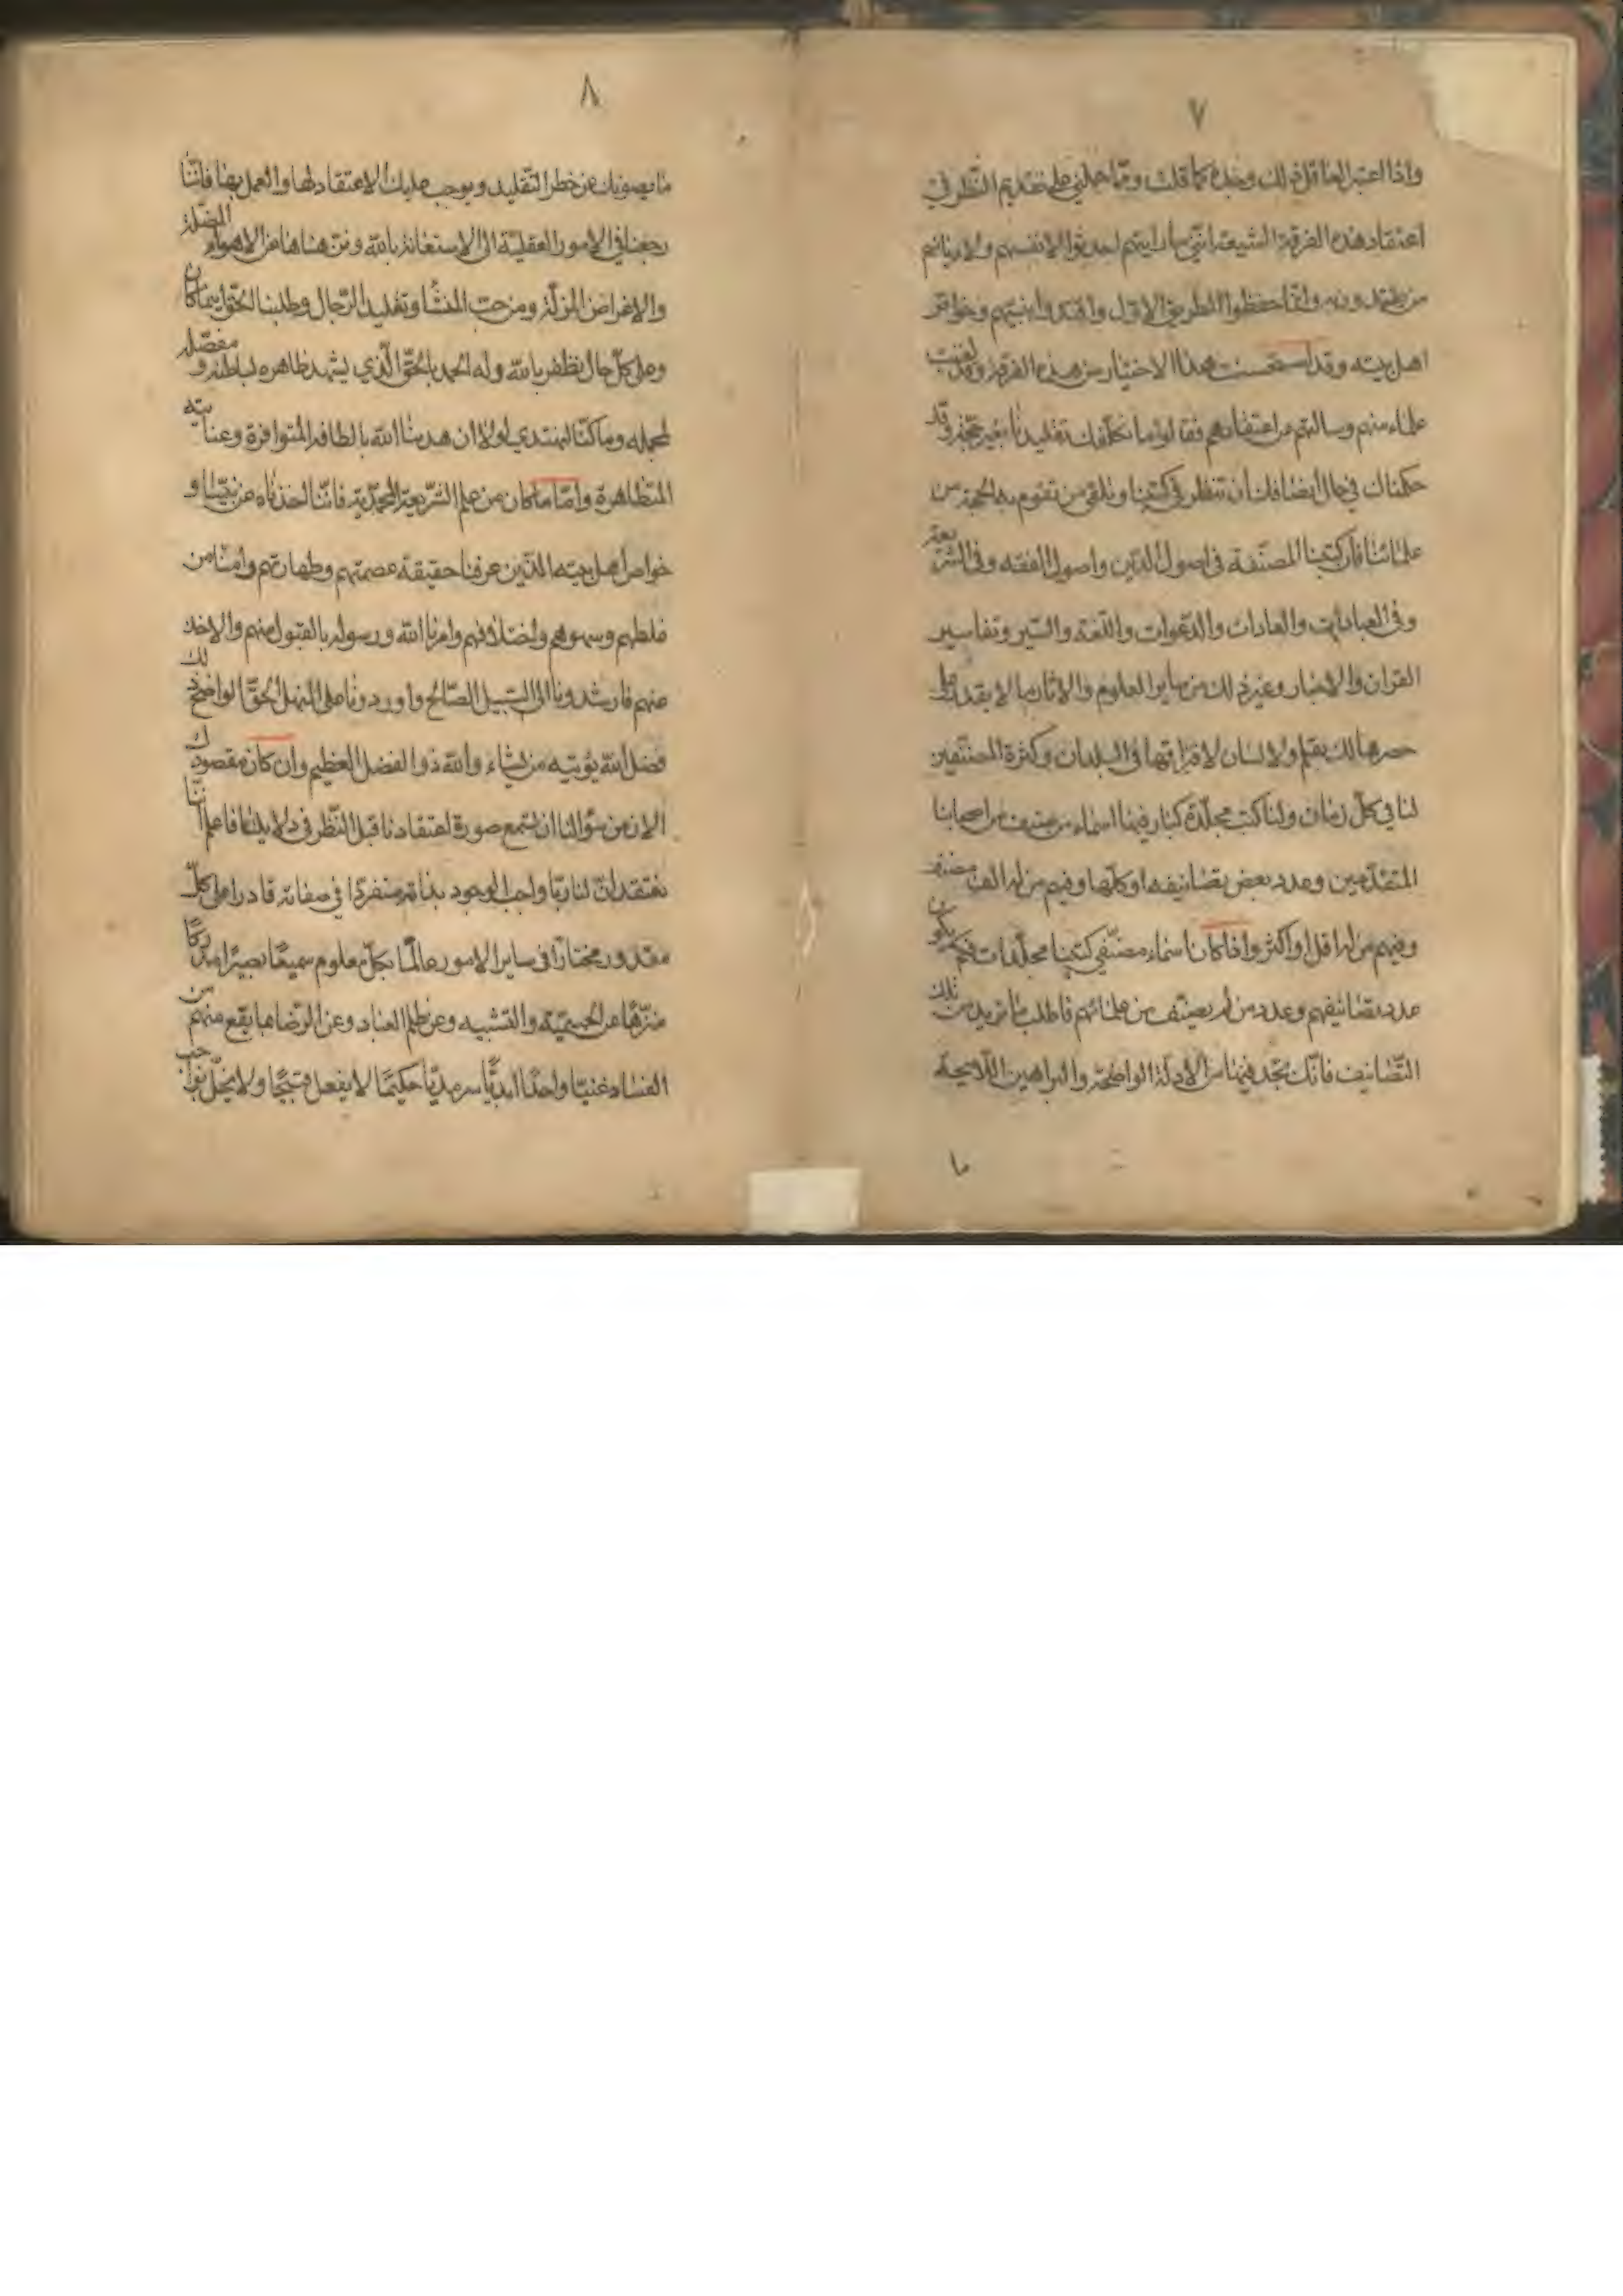 ٧
واذا اعتبر العاقل ذلك وجده كما قلت وممّا حملني على تقديم النّظر في
اعتقاد هذه الفرقة الشيعة انّني ما رايتهم احدثوا لانفسهم ولا دياناتهم
من يقتدون به وانّما حفظوا الطريق الاوّل واقتدوا بنبيّهم وخواصّ
اهل بيته وقد استحسنت هذا الاختيار من هذه الفرقة وقد لقيت
علماء منهم وسالتهم عن اعتقادهم فقالوا ما نكلّفك تقليدنا بغير حجّة وقد
حكمناك في حال ايضا فلك ان تنظر في كتبنا وتلقى من تقوم به الحجة من
علمائنا فان كتبنا المصنّفة في اصول الدّين واصول الفقه وفي الشريعة
وفي العبادات والعادات والدّعوات واللّغة والسّير وتفاسير
القران والاخبار وغير ذلك من ساير العلوم والاثار ما لا يقدر على
حصرها لك بقلم ولا لسان لافتراقها في البلدان وكثرة المصنّفين
لنا في كلّ زمان ولنا كتب مجلّدة كبار فيها اسماء من صنف من اصحابنا
المتقدّمين وعدد بعض تصانيفه او كلّها وفيهم من له الف مصنف
وفيهم من له اقل او اكثر واذا كان اسماء مصنّفي كتبنا مجلّدات فكم يكون
عدد تصانيفهم وعدد من لم يصنّف من علمائهم فاطلب ما تريد من تلك
التّصانيف فانّك تجد فيها من الادلّة الواضحة والبراهين اللّايحة
ما
٨
ما يصونك عن خطر التّقليد ويوجب عليك الاعتقاد لها والعمل بها فانّنا
رجعنا في الامور العقليّة الى الاستعانة بالله ونزّهناها عن الاهواء المضلّة
والاغراض المزلّة ومن حبّ المنشا وتقليد الرّجال وطلبنا الحقّ اينما كان
وعلى كلّ حال نظفر بالله وله الحمد بالحقّ الّذي يشهد ظاهره لباطنه و مفصّله
لمجمله وما كنّا لنهتدي لولا ان هدينا الله بالطافه المتوافرة وعنايته
المتظاهرة وامّا ما كان من علم الشّريعة المحمّديّة فانّنا اخذناه عن نبيّنا و
خواصّ اهل بيته الذّين عرفنا حقيقة عصمتهم وطهارتهم وامنّا من
غلطهم وسهوهم واختلافهم وامرنا الله ورسوله بالقبول منهم والاخذ
عنهم فارشدونا الى السّبيل الصّالح واوردونا على المنهل الحقّ الواضح ذلك
فضل الله يؤتيه من يشاء والله ذو الفضل العظيم وان كان مقصودك
الان من سؤالنا ان تسمع صورة اعتقادنا قبل النّظر في دلايلنا فاعلم انّنا
نعتقد انّ لنا ربّا واجب الوجود بذاته متفردّا في صفاته قادرا على كلّ
مقدور مختارًا في ساير الامور عالمًا بكلّ معلوم سميعًا بصيرًا مدركًا
منزّهًا عن الجسميّة والتشبيه وعن ظلم العباد وعن الرّضا بما يقع منهم من
الفساد غنيّا واحدًا ابديًّا سرمديّا حكيمًا لا يفعل قبيحًا ولا يخلّ بواجب